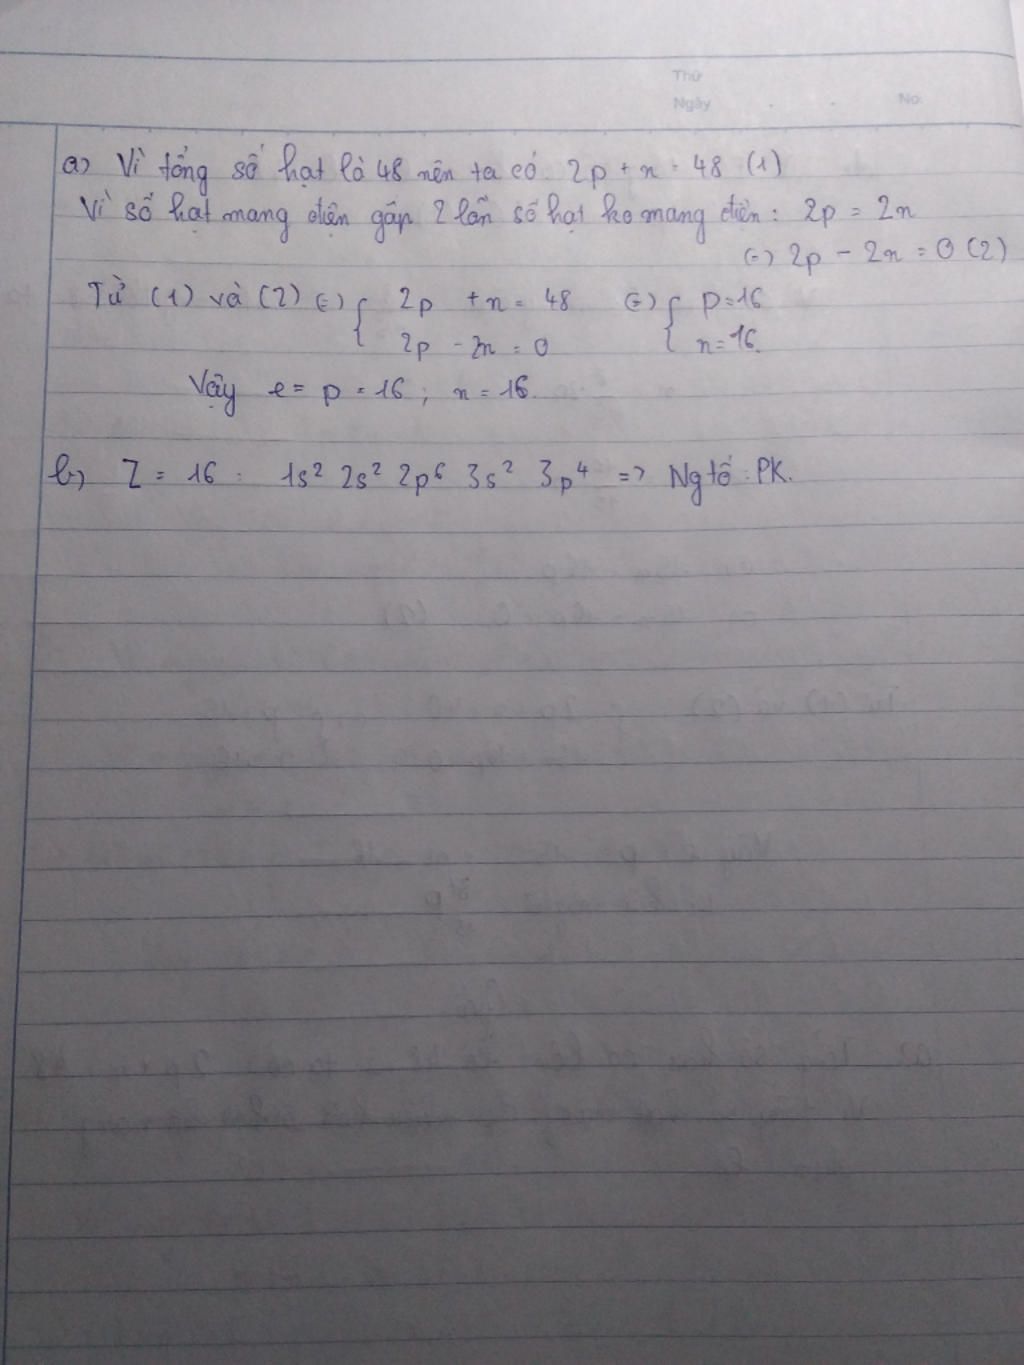 Thứ
Ngày . . No.
a) Vì tổng số hạt là 48 nên ta có 2p + n = 48 (1)
Vì số hạt mang điện gấp 2 lần số hạt ko mang điện : 2p = 2n
(=) 2p - 2n = 0 (2)
Từ (1) và (2) (=) { 2p + n = 48 (=) { p = 16
2p - 2n = 0 n = 16.
Vậy e = p = 16 ; n = 16.
b) Z = 16 : 1s² 2s² 2p⁶ 3s² 3p⁴ => Ng tố : PK.